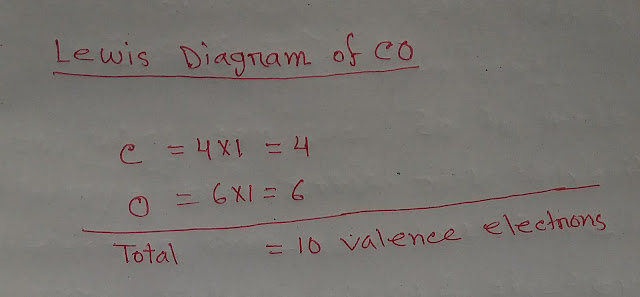 Lewis Diagram of CO
C = 4X1 = 4
O = 6X1 = 6
Total = 10 valence electrons